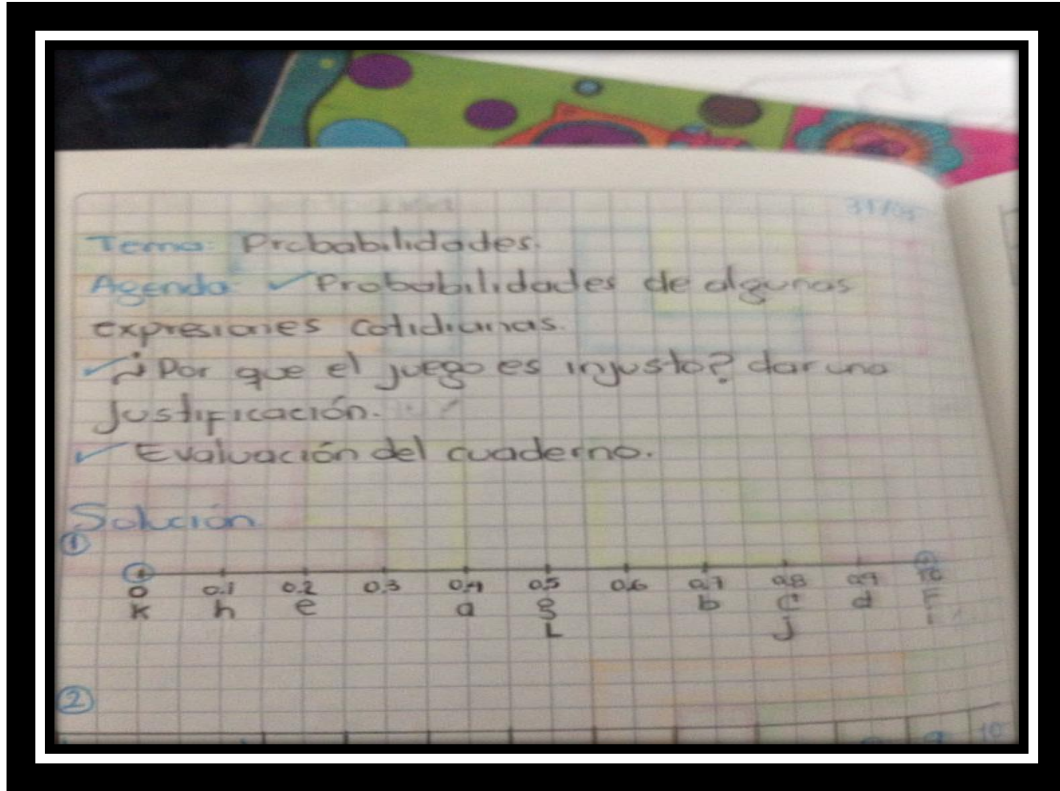 Tema: Probabilidades.
Agenda: ✓ Probabilidades de algunas
expresiones cotidianas.
✓ ¿Por que el juego es injusto? dar una
Justificación.
✓ Evaluación del cuaderno.
Solución
1
0 0.1 0.2 0.3 0.4 0.5 0.6 0.7 0.8 0.9
K h e a g b C d F
L j i
2
9 10